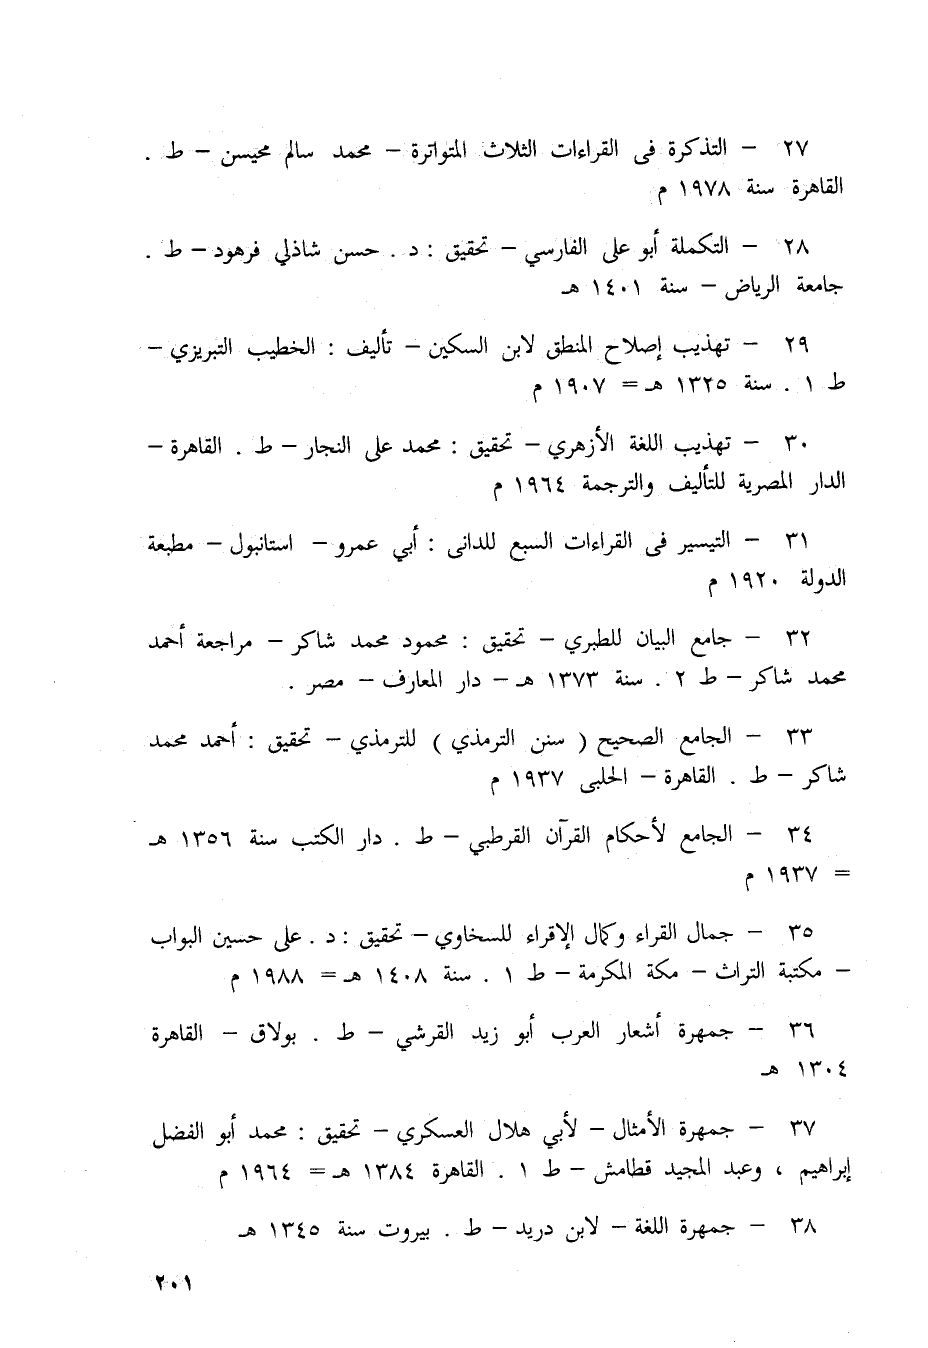 ٢٧ – التذكرة فى القراءات الثلاث المتواترة – محمد سالم محيسن – ط .
القاهرة سنة ١٩٧٨ م
٢٨ – التكملة أبو على الفارسي – تحقيق : د . حسن شاذلي فرهود – ط .
جامعة الرياض – سنة ١٤٠١ هـ
٢٩ – تهذيب إصلاح المنطق لابن السكين – تأليف : الخطيب التبريزي –
ط ١ . سنة ١٣٢٥ هـ = ١٩٠٧ م
٣٠ – تهذيب اللغة الأزهري – تحقيق : محمد على النجار – ط . القاهرة –
الدار المصرية للتأليف والترجمة ١٩٦٤ م
٣١ – التيسير فى القراءات السبع للدانى : أبي عمرو – استانبول – مطبعة
الدولة ١٩٢٠ م
٣٢ – جامع البيان للطبري – تحقيق : محمود محمد شاكر – مراجعة أحمد
محمد شاكر – ط ٢ . سنة ١٣٧٣ هـ – دار المعارف – مصر .
٣٣ – الجامع الصحيح ( سنن الترمذي ) للترمذي – تحقيق : أحمد محمد
شاكر – ط . القاهرة – الحلبى ١٩٣٧ م
٣٤ – الجامع لأحكام القرآن القرطبي – ط . دار الكتب سنة ١٣٥٦ هـ
= ١٩٣٧ م
٣٥ – جمال القراء وكمال الإقراء للسخاوي – تحقيق : د . على حسين البواب
– مكتبة التراث – مكة المكرمة – ط ١ . سنة ١٤٠٨ هـ = ١٩٨٨ م
٣٦ – جمهرة أشعار العرب أبو زيد القرشي – ط . بولاق – القاهرة
١٣٠٤ هـ
٣٧ – جمهرة الأمثال – لأبي هلال العسكري – تحقيق : محمد أبو الفضل
إبراهيم ، وعبد المجيد قطامش – ط ١ . القاهرة ١٣٨٤ هـ = ١٩٦٤ م
٣٨ – جمهرة اللغة – لابن دريد – ط . بيروت سنة ١٣٤٥ هـ
٢٠١